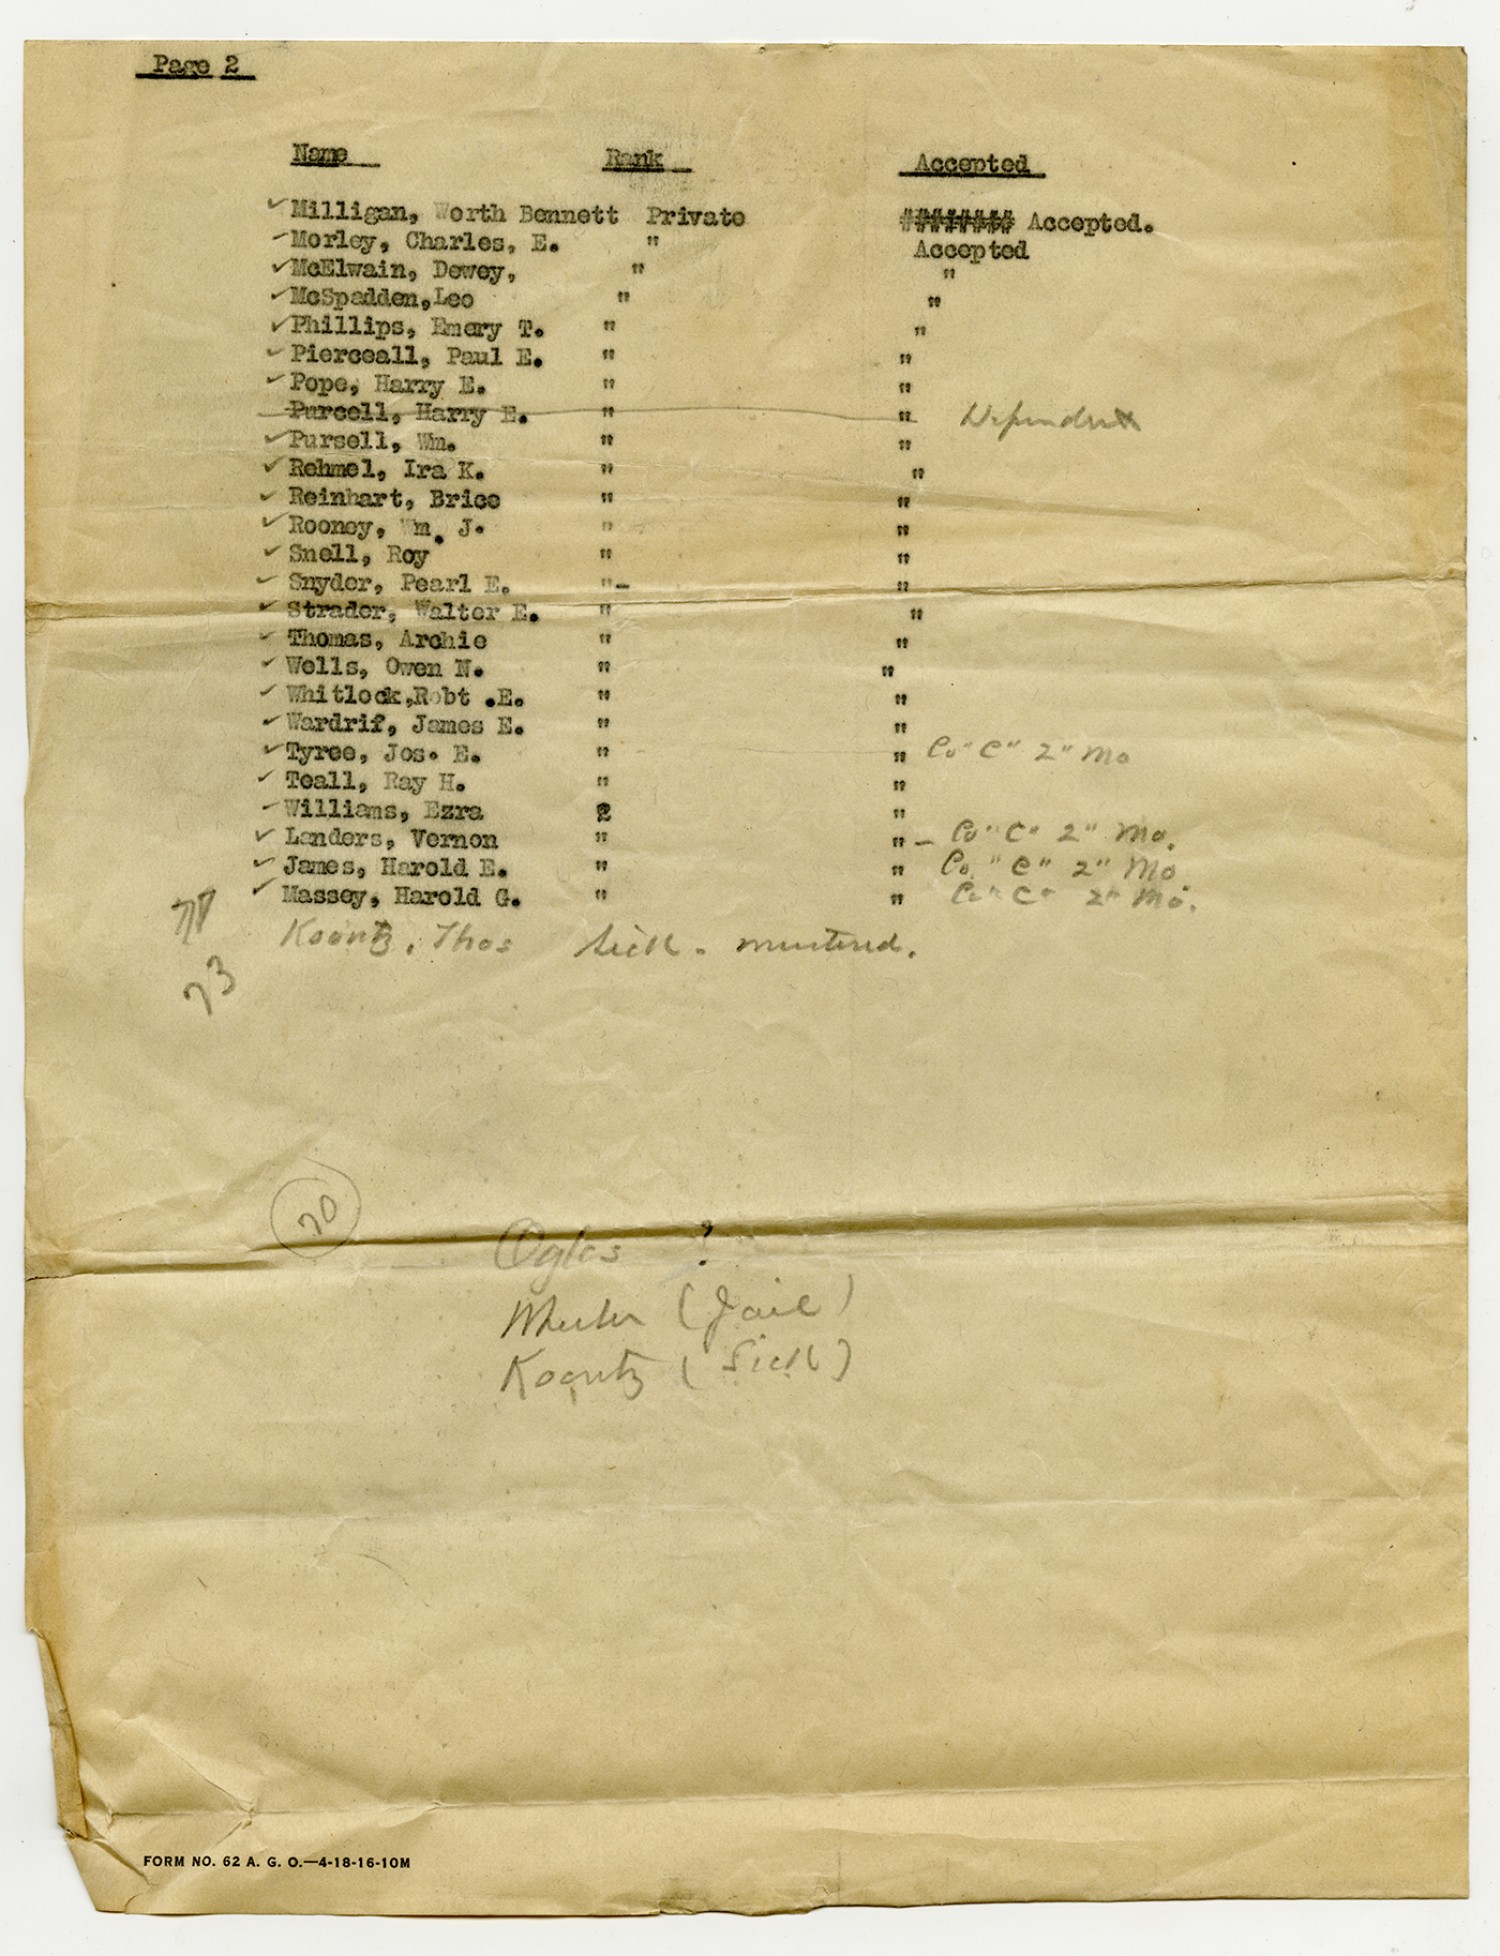 Page 2
Name Rank Accepted
✓Milligan, Worth Bennett Private ######## Accepted.
✓Morley, Charles, E. " Accepted
✓McElwain, Dewey, " "
✓McSpadden,Leo " "
✓Phillips, Emery T. " "
✓Pierceall, Paul E. " "
✓Pope, Harry E. " "
Purcell, Harry E. " " Dependent
✓Pursell, Wm. " "
✓Rehmel, Ira K. " "
✓Reinhart, Brice " "
✓Rooney, Wm. J. " "
✓Snell, Roy " "
✓Snyder, Pearl E. "- "
✓Strader, Walter E. " "
✓Thomas, Archie " "
✓Wells, Owen N. " "
✓Whitlock,Robt .E. " "
✓Wardrif, James E. " "
✓Tyree, Jos. E. " " Co "C" 2" Mo
✓Teall, Ray H. " "
✓Williams, Ezra "
✓Landers, Vernon " " - Co "C" 2" Mo.
✓James, Harold E. " " Co. "C" 2" Mo
✓Massey, Harold G. " " Co "C" 2" Mo.
Koontz, Thos Sick - mustered.
73
70
Ogles ?
Wheeler (Jail)
Koontz (Sick)
FORM NO. 62 A. G. O.—4-18-16-10M